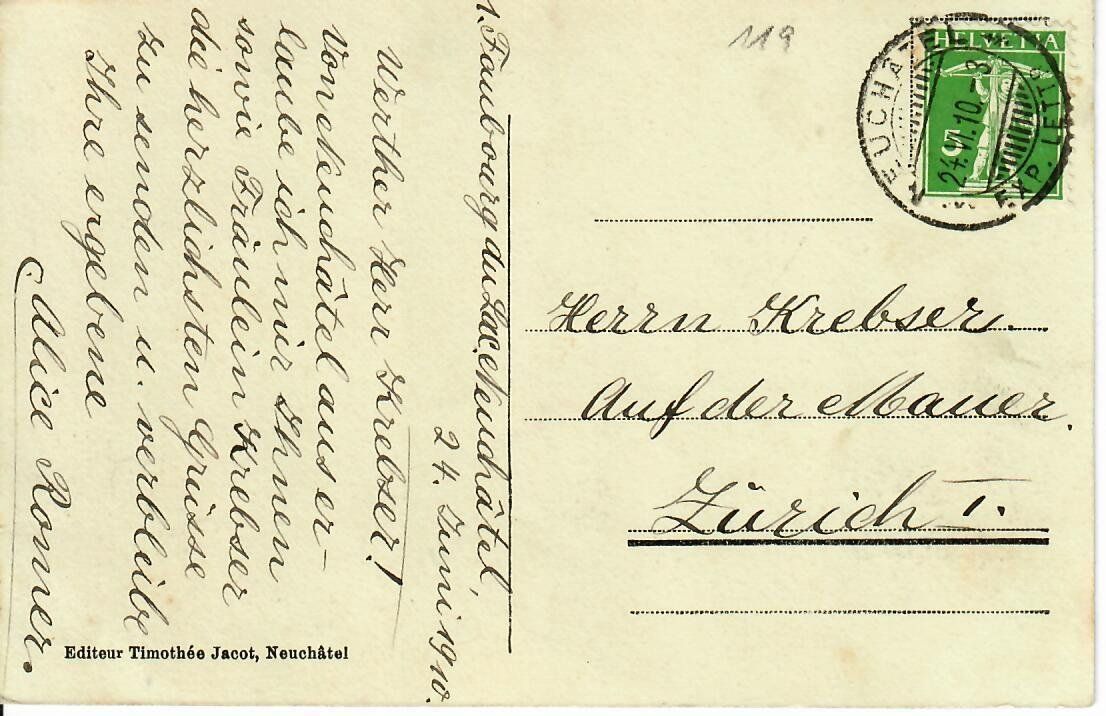 1. Faubourg du Lac. Neuchâtel,
24. Juni 1910.
Werther Herr Krebser!
Von Neuchâtel auser-
laube ich mir Ihnen
sowie Fräulein Krebser
die herzlichsten Grüsse
zu senden u. verbleibe
Ihre ergebene
Alice Romer.
Editeur Timothée Jacot, Neuchâtel
119
HELVETIA
5
NEUCHÂTEL
24.VI.10.-8
EXP. LETT.
Herrn Krebser.
Auf der Mauer.
Zürich I.